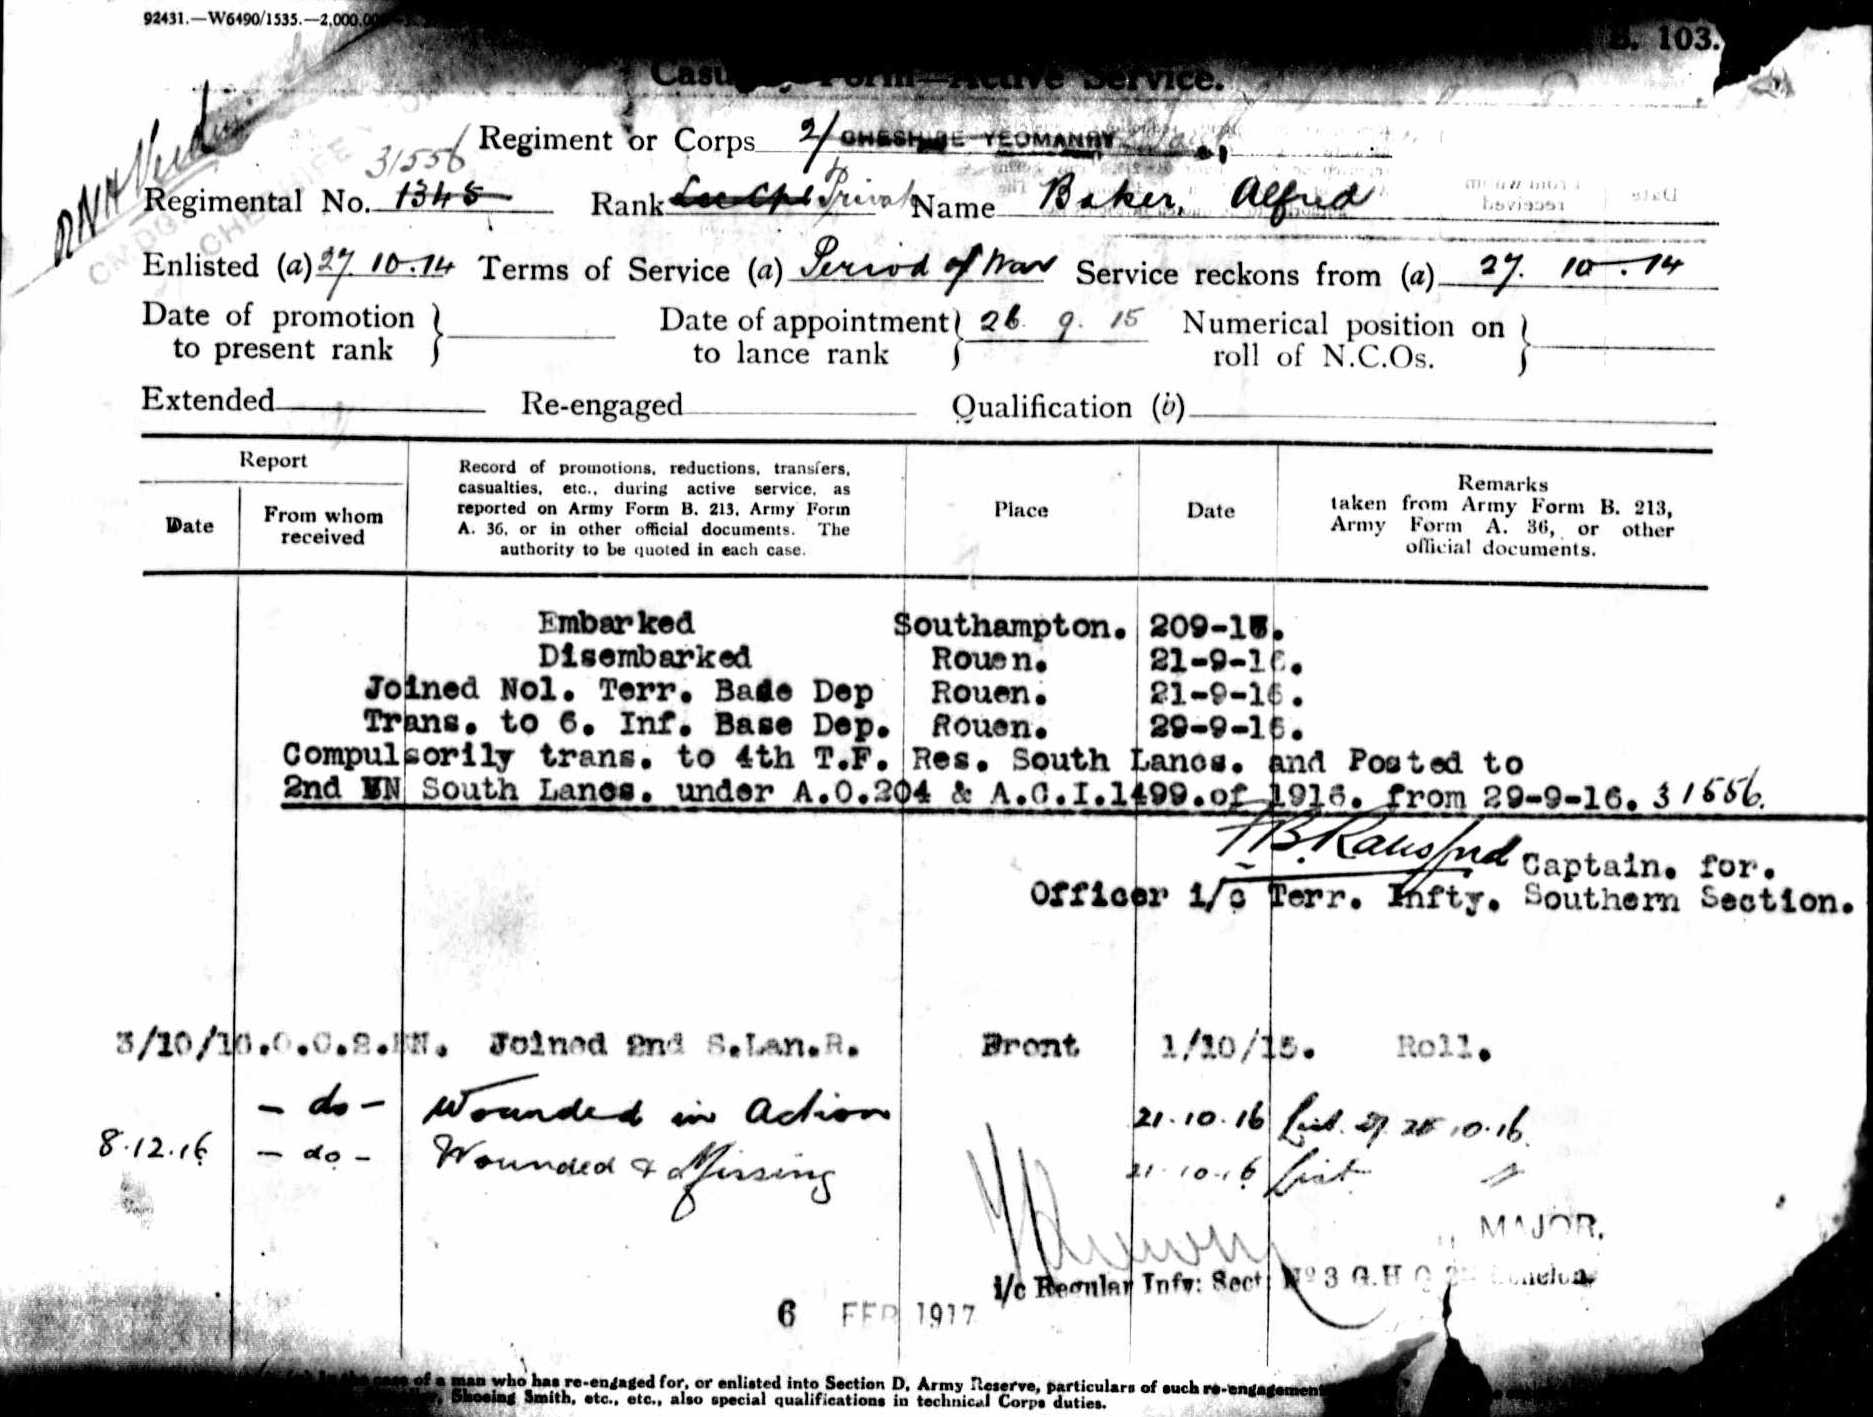 92431.—W6490/1535.—2,000,00
B. 103.
Casu Form—Active Service.
31556
Regiment or Corps 2/ CHESHIRE YEOMANRY
Regimental No. 1345 Rank Private Name Baker, Alfred
Enlisted (a) 27.10.14 Terms of Service (a) Period of War Service reckons from (a) 27. 10. 14
Date of promotion to present rank } Date of appointment to lance rank } 26. 9. 15 Numerical position on roll of N.C.Os. }
Extended Re-engaged Qualification (b)
Report
Date
From whom received
Record of promotions, reductions, transfers,
casualties, etc., during active service, as
reported on Army Form B. 213, Army Form
A. 36, or in other official documents. The
authority to be quoted in each case.
Place
Date
Remarks
taken from Army Form B. 213,
Army Form A. 36, or other
official documents.
Embarked Southampton. 209-16.
Disembarked Rouen. 21-9-16.
Joined No1. Terr. Bade Dep Rouen. 21-9-16.
Trans. to 6. Inf. Base Dep. Rouen. 29-9-16.
Compulsorily trans. to 4th T.F. Res. South Lancs. and Posted to
2nd BN South Lancs. under A.O.204 & A.C.I.1499.of 1916. from 29-9-16. 31556.
Captain. for.
Officer i/c Terr. Infty. Southern Section.
3/10/16. O.C.2.BN. Joined 2nd S.Lan.R. Front 1/10/16. Roll.
- do - Wounded in Action 21.10.16 List 10.16.
8.12.16 - do - Wounded & Missing 21.10.16 List "
MAJOR.
i/c Regular Infy: Sect: No 3 G.H.Q. Echelon.
6 FEB 1917
case of a man who has re-engaged for, or enlisted into Section D, Army Reserve, particulars of such re-engagement
Shoeing Smith, etc., etc., also special qualifications in technical Corps duties.